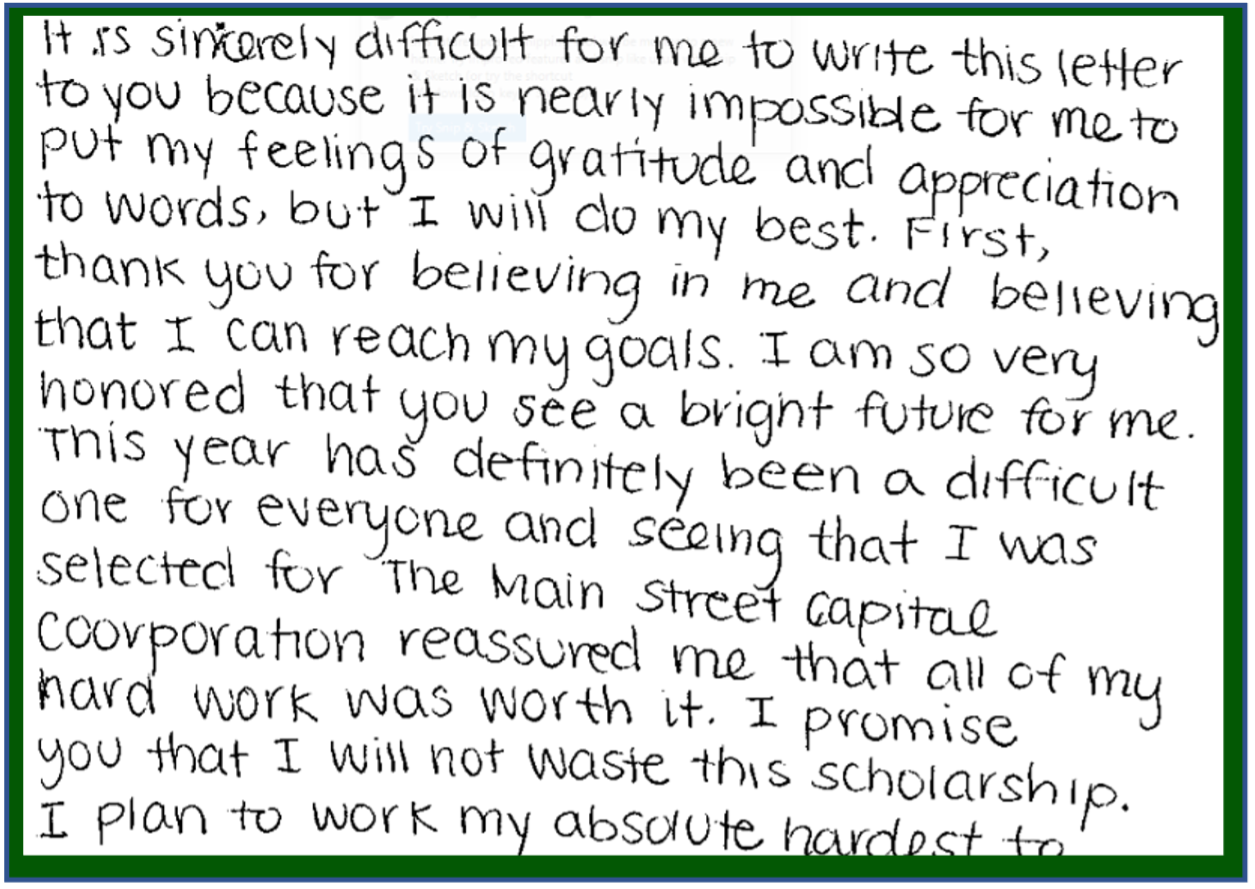 It is sincerely difficult for me to write this letter
to you because it is nearly impossible for me to
put my feelings of gratitude and appreciation
to words, but I will do my best. First,
thank you for believing in me and believing
that I can reach my goals. I am so very
honored that you see a bright future for me.
This year has definitely been a difficult
one for everyone and seeing that I was
selected for The Main Street Capital
Coorporation reassured me that all of my
hard work was worth it. I promise
you that I will not waste this scholarship.
I plan to work my absolute hardest to